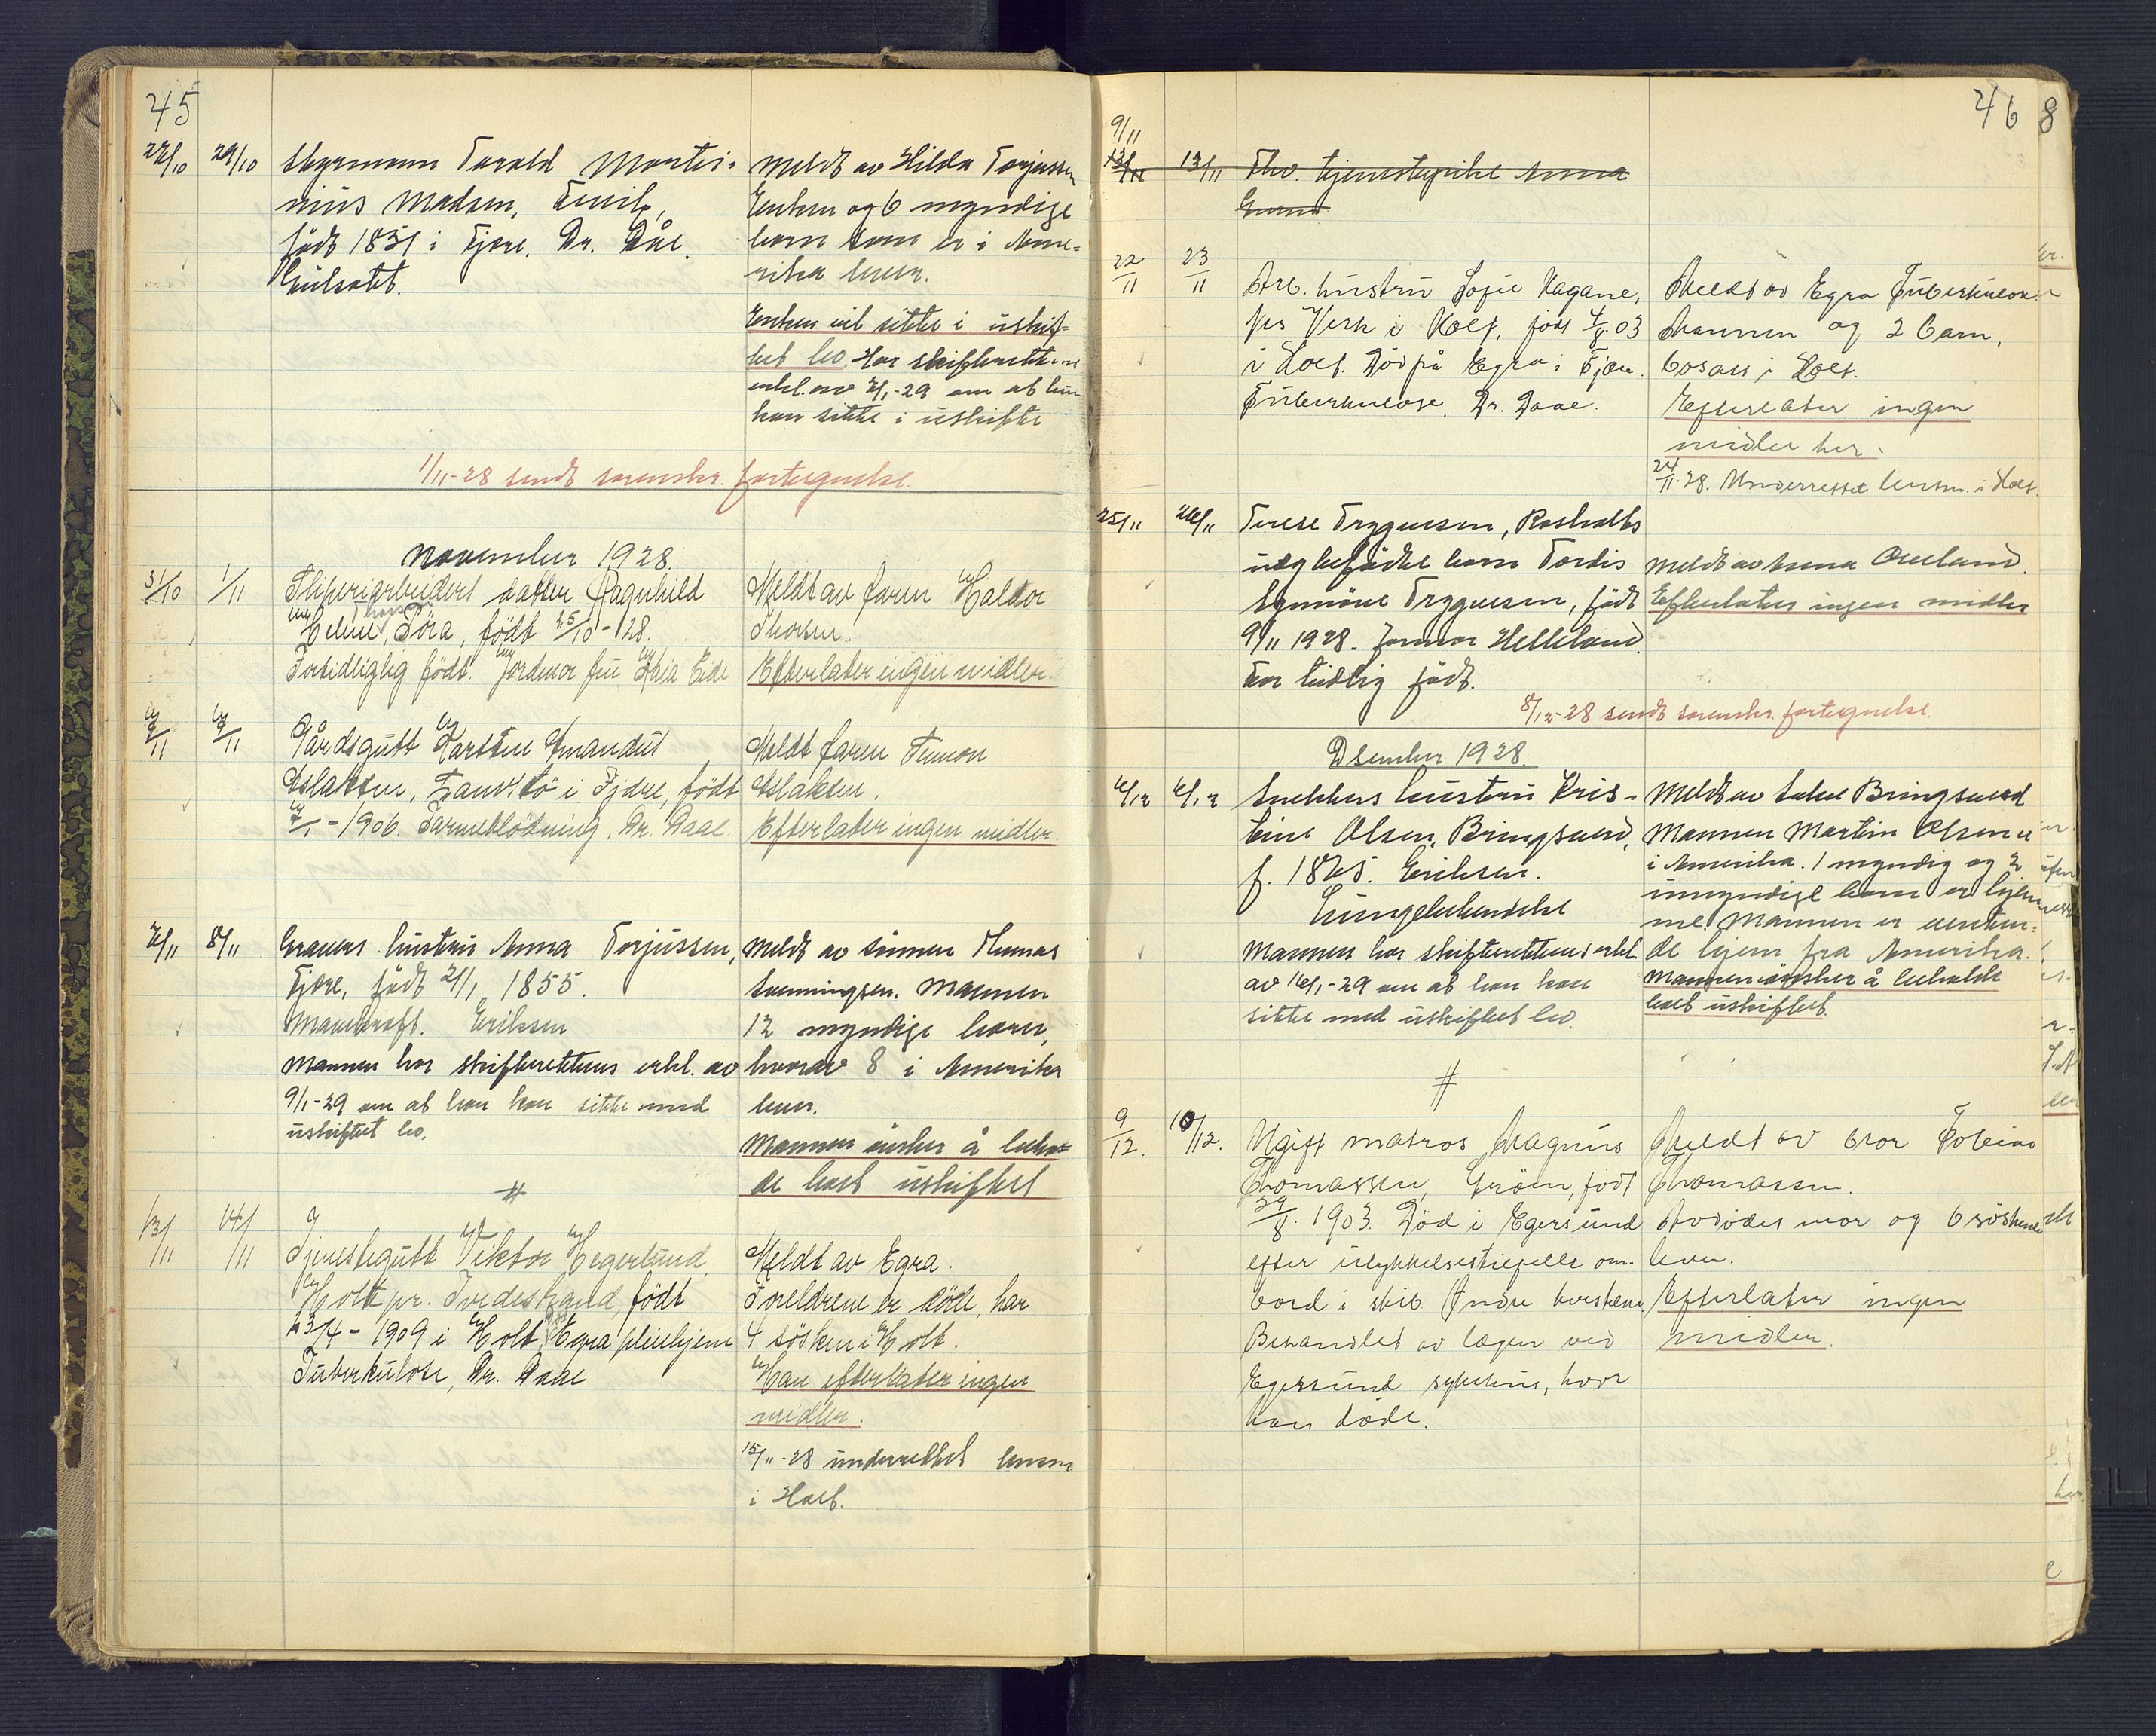 45
27/10 29/10 Skyrmann Tarald Marti-
nius Madsen,
født 1851 i Fjære. Dr. Dåe.
Meldt av Hilda Torjussen
Enken og 6 myndige
barn som er i Ame-
rika lever.
Enken vil sitte i uskif-
tet bo. Har skifterettens
erkl. av 2/1-29 om at hun
kan sitte i uskifte
1/11-28 sendt sorenskr. fortegnelse.
November 1928.
31/10 1/11 Sliperiarbeiders datter Ragnhild
Helene Thorsen Tóra, født 25/10-28.
Fortidliglig født. Jordmor fru Kaia Eide
Meldt av faren Haldor
Thorsen.
Efterlater ingen midler.
8/11 9/11 Gårdsgutt Karsten Amandus
Aslaksen, i Fjære, født
7/1-1906. Tarmeblødning. Dr. Daae
Meldt faren Simon
Aslaksen.
Efterlater ingen midler.
7/11 8/11 Gravers hustru Anna Torjussen,
Fjære, født 21/1 1855.
Mavekreft. Eriksen
Mannen har skifterettens erkl. av
9/1-29 om at han kan sitte med
uskiftet bo.
Meldt av sønnen Thomas
Svenningsen. Mannen
12 myndige barn,
hvorav 8 i Amerika
lever.
Mannen ønsker å behol-
de boet uskiftet
#
13/11 14/11 Tjenestegutt Viktor Hegerlund,
Holt pr. Tvedestrand, født
23/4-1909 i Holt, Egra pleiehjem
Tuberkulose, Dr. Daae
Meldt av Egra.
Foreldrene er døde, har
4 søsken i Holt.
Han efterlater ingen
midler.
15/11-28 underrettet lensm
i Holt.
46
8
9/11
13/11 13/11 Fhv. tjenestepike Anna
22/11 23/11 Arb. hustru Sofie Hagane,
Nes Verk i Holt, født 4/8 03
i Holt. Død på Egra i Fjære.
Tuberkulose. Dr. Daae.
Meldt av Egra Tuberkulose
Mannen og 2 barn,
bosatt i Holt.
Efterlater ingen
midler her.
24/11-28. Underrettet lensm. i Holt.
25/11 26/11 Terese Trygvesen, Rosholts
uegtefødte barn Tordis
Synnøve Trygvesen, født
9/11 1928. Jormor Helleland.
For tidlig født.
Meldt av Anna Omland.
Efterlater ingen midler
8/12-28 sendt sorenskr. fortegnelse.
Dsember 1928.
6/12 6/12 Snekkers hustru Kris-
tine Olsen, Bringsverd,
f. 1865. Eriksen.
Lungebetendelse
Mannen har skifterettens erkl.
av 16/1-29 om at han kan
sitte med uskiftet bo.
Meldt av Bringsverd
Mannen Martin Olsen er
i Amerika. 1 myndig og 2
umyndige barn er hjem-
me. Mannen er venten-
de hjem fra Amerika.
Mannen ønsker å beholde
boet uskiftet.
#
9/12. 10/12. Ugift matros Magnus
Thomassen, Grøm, født
29/8. 1903. Død i Egersund
efter ulykkelsestilfelle om-
bord i skib
Behandlet av lægen ved
Egersund sykehus, hvor
han døde.
Meldt av bror Tobias
Thomassen.
Avdødes mor og 6 søskende
lever.
Efterlater ingen
midler.